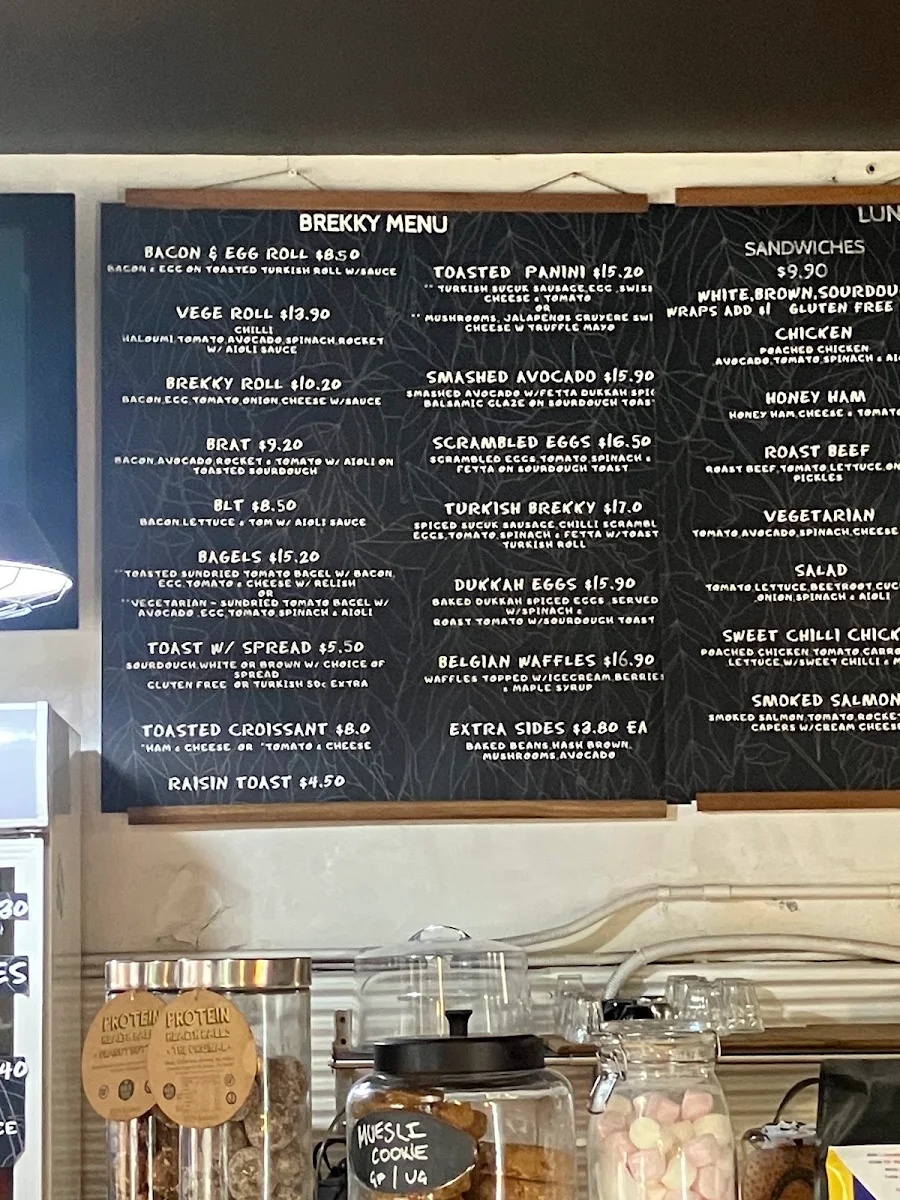 BREKKY MENU
BACON & EGG ROLL $8.50
BACON & EGG ON TOASTED TURKISH ROLL W/SAUCE
VEGE ROLL $13.90
CHILLI
HALOUMI,TOMATO,AVOCADO,SPINACH,ROCKET
W/ AIOLI SAUCE
BREKKY ROLL $10.20
BACON,EGG,TOMATO,ONION,CHEESE W/SAUCE
BRAT $9.20
BACON,AVOCADO,ROCKET & TOMATO W/ AIOLI ON
TOASTED SOURDOUGH
BLT $8.50
BACON,LETTUCE & TOM W/ AIOLI SAUCE
BAGELS $15.20
**TOASTED SUNDRIED TOMATO BAGEL W/ BACON,
EGG,TOMATO & CHEESE W/ RELISH
OR
**VEGETARIAN - SUNDRIED TOMATO BAGEL W/
AVOCADO ,EGG,TOMATO,SPINACH & AIOLI
TOAST W/ SPREAD $5.50
SOURDOUGH,WHITE OR BROWN W/ CHOICE OF
SPREAD
GLUTEN FREE OR TURKISH 50c EXTRA
TOASTED CROISSANT $8.0
*HAM & CHEESE OR *TOMATO & CHEESE
RAISIN TOAST $4.50
TOASTED PANINI $15.20
** TURKISH SUCUK SAUSAGE,EGG ,SWISS
CHEESE & TOMATO
OR
** MUSHROOMS, JALAPENOS GRUYERE SWI
CHEESE W TRUFFLE MAYO
SMASHED AVOCADO $15.90
SMASHED AVOCADO W/FETTA DUKKAH SPIC
BALSAMIC GLAZE ON SOURDOUGH TOAS
SCRAMBLED EGGS $16.50
SCRAMBLED EGGS,TOMATO,SPINACH &
FETTA ON SOURDOUGH TOAST
TURKISH BREKKY $17.0
SPICED SUCUK SAUSAGE,CHILLI SCRAMBL
EGGS,TOMATO,SPINACH & FETTA W/TOAST
TURKISH ROLL
DUKKAH EGGS $15.90
BAKED DUKKAH SPICED EGGS ,SERVED
W/SPINACH &
ROAST TOMATO W/SOURDOUGH TOAST
BELGIAN WAFFLES $16.90
WAFFLES TOPPED W/ICECREAM,BERRIES
& MAPLE SYRUP
EXTRA SIDES $3.80 EA
BAKED BEANS,HASH BROWN,
MUSHROOMS,AVOCADO
LUN
SANDWICHES
$9.90
WHITE,BROWN,SOURDOU
WRAPS ADD $1 GLUTEN FREE
CHICKEN
POACHED CHICKEN
,AVOCADO,TOMATO,SPINACH & AI
HONEY HAM
HONEY HAM,CHEESE & TOMATO
ROAST BEEF
ROAST BEEF,TOMATO,LETTUCE,ON
PICKLES
VEGETARIAN
TOMATO,AVOCADO,SPINACH,CHEESE
SALAD
TOMATO,LETTUCE,BEETROOT,CUC
,ONION,SPINACH & AIOLI
SWEET CHILLI CHICK
POACHED CHICKEN,TOMATO,CARRO
LETTUCE,W/SWEET CHILLI & M
SMOKED SALMON
SMOKED SALMON,TOMATO,ROCKET
CAPERS W/CREAM CHEESE
30
ES
40
CE
PROTEIN
PEANUT BUT
PROTEIN
HEALTH BALLS
THE ORIGINAL
MUESLI
COOKIE
GF | VG